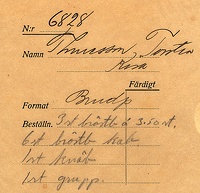 N:r 6828
Namn Thuresson, Torsten
Kisa
Färdigt
Format Brudp
Beställn. 3 st bröstb à 3.50 st.
6 st bröstb kab
1 st knäb
1 st grupp.